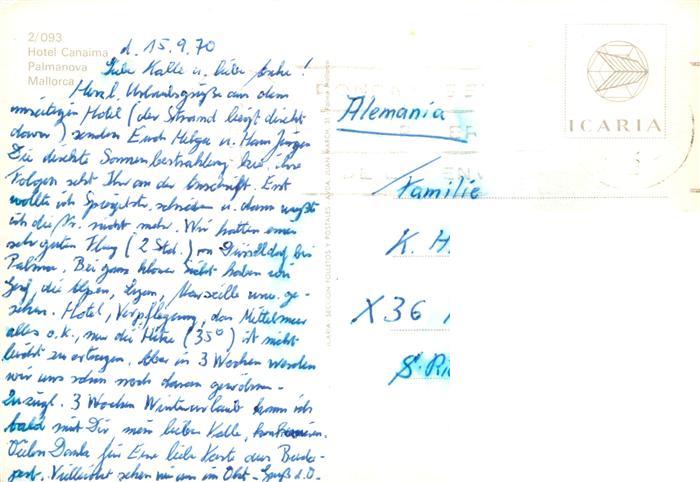 2/093
Hotel Canaima
Palmanova
Mallorca
d. 15.9.70
Liebe Kalle u. liebe
Herzl. Urlaubsgrüße aus dem
umseitigen Hotel (der Strand liegt direkt
davor) senden Euch Helga u. Hans Jürgen
Die direkte Sonnenbestrahlung hier, ihre
Folgen seht Ihr an der Anschrift. Erst
wollte ich schreiben u. dann wußte
ich die Nr. nicht mehr. Wir hatten einen
sehr guten Flug (2 Std.) von Düsseldorf bis
Palma. Bei ganz klarer Sicht haben wir
Genf, die Alpen, Lyon, Marseille usw. ge-
sehen. Hotel, Verpflegung, das Mittelmeer
alles o.k., nur die Hitze (35°) ist nicht
leicht zu ertragen. Aber in 3 Wochen werden
wir uns schon noch daran gewöhnen.
Zuzügl. 3 Wochen Winterurlaub kann ich
bald mit Dir mein lieber Kalle, konkurrieren.
Vielen Dank für Eure liebe Karte aus Buda-
pest. Vielleicht sehen wir uns im Okt. - Gruß d.O.
ICARIA
Alemania
Familie
K. H
X36
S. Ri
ICARIA - SECCION FOLLETOS Y POSTALES - AVDA. JUAN MARCH, 21 - Palma Mallorca